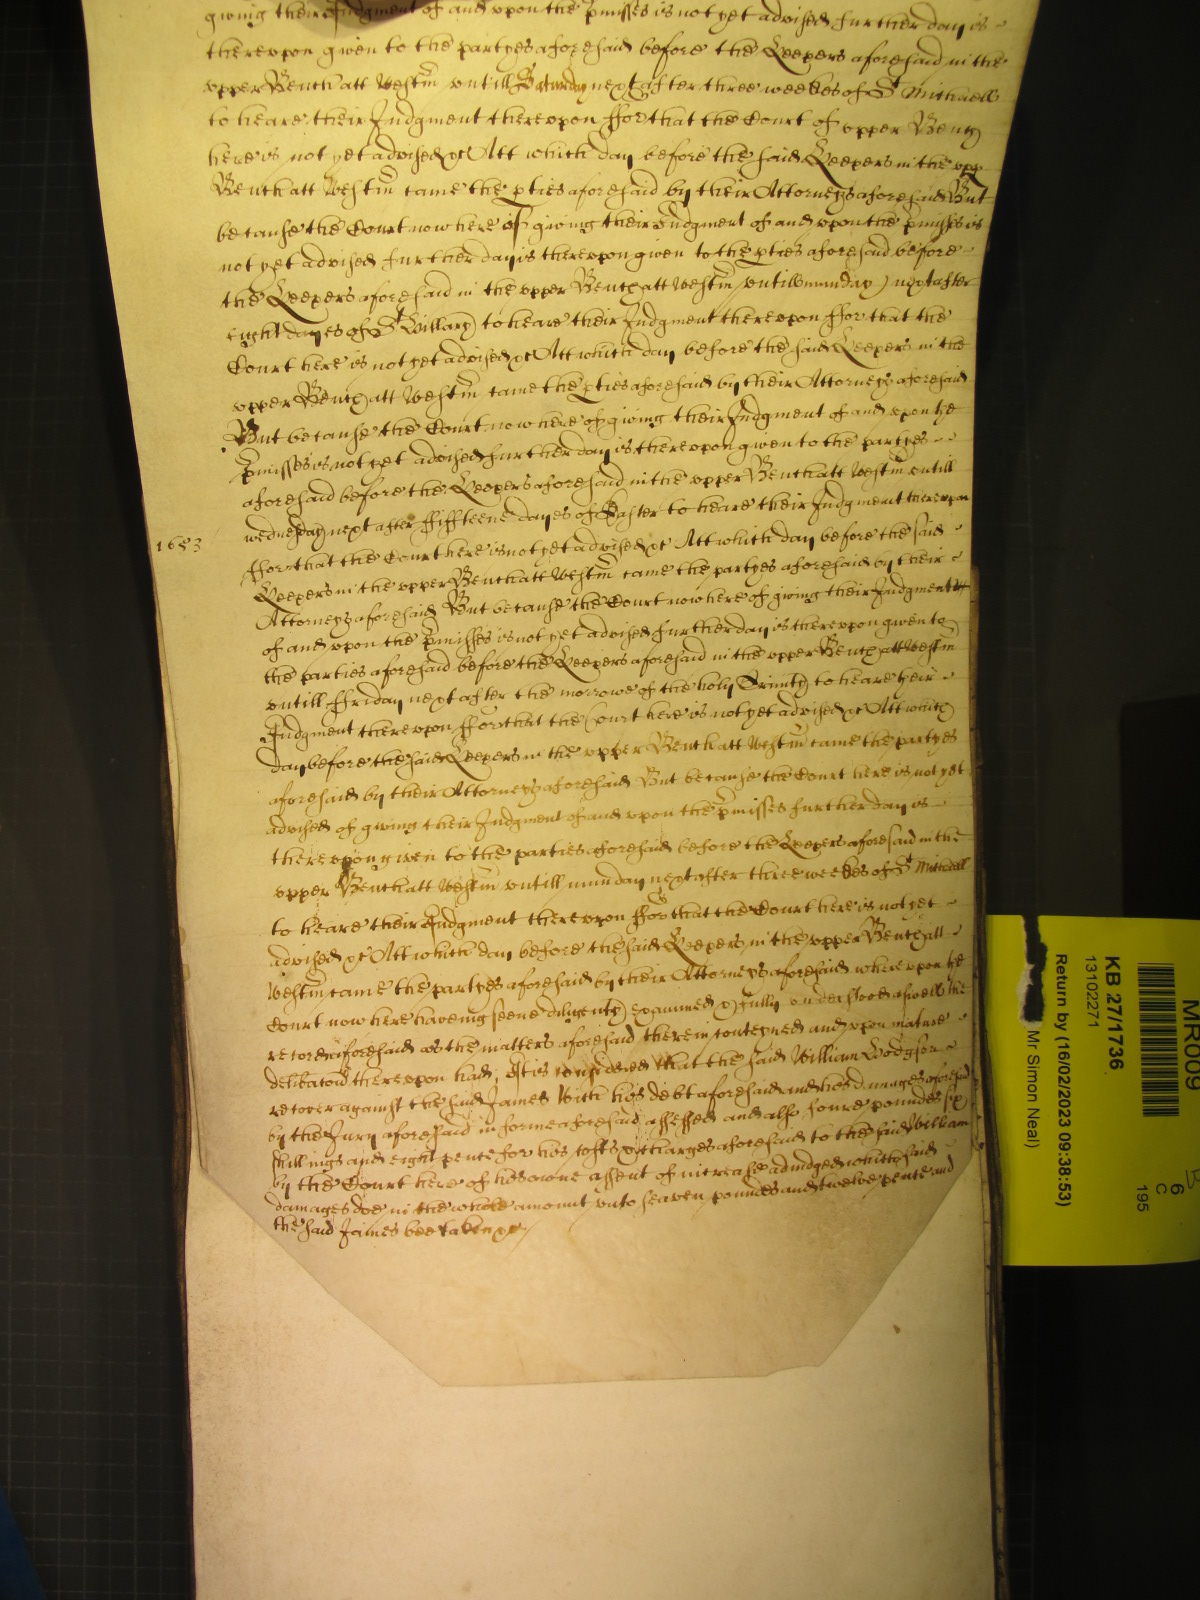 giving their Judgment of and upon the p'misses is not yet advised further day is
thereupon given to the partyes aforesaid before the Keepers aforesaid in the
upper Bench att Westm̃ untill Saturday next after three weekes of St Michaell
to heare their Judgment thereupon ffor that the Court of upper Bench
here is not yet advised &c Att which day before the said Keepers in the upp
Bench att Westm̃ came the pties aforesaid by their Attorneys aforesaid But
because the Court now here of giving their Judgment of and upon the p'misses is
not yet advised further day is thereupon given to the pties aforesaid before
the Keepers aforesaid in the upper Bench att Westm̃ untill munday next after
eight dayes of St Hillary to heare their Judgment thereupon ffor that the
Court here is not yet advised &c Att which day before the said Keepers in the
upper Bench att Westm̃ came the pties aforesaid by their Attorneys aforesaid
But because the Court now here of giving their Judgment of and upon the
p'misses is not yet advised further day is thereupon given to the partyes
aforesaid before the Keepers aforesaid in the upper Bench att Westm̃ untill
wednesday next after fiffteene dayes of Easter to heare their Judgment thereupon
1653
ffor that the Court here is not yet advised &c Att which day before the said
Keepers in the upper Bench att Westm̃ came the partyes aforesaid by their
Attorneys aforesaid But because the Court now here of giving their Judgment
of and upon the p'misses is not yet advised further day is thereupon given to
the parties aforesaid before the Keepers aforesaid in the upper Bench att Westm̃
untill ffriday next after the morrowe of the holy Trinity to heare their
Judgment thereupon ffor that the Court here is not yet advised &c Att which
day before the said Keepers in the upper Bench att Westm̃ came the partyes
aforesaid by their Attorneys aforesaid But because the Court here is not yet
advised of giving their Judgment of and upon the p'misses further day is
thereupon given to the parties aforesaid before the Keepers aforesaid in the
upper Bench att Westm̃ untill munday next after three weekes of St Michaell
to heare their Judgment thereupon ffor that the Court here is not yet
advised &c Att which day before the said Keepers in the upper Bench att
Westm̃ came the partyes aforesaid by their Attorneys aforesaid whereupon the
Court now here haveing seene diligently examined & fully understood aswell the
record aforesaid as the matters aforesaid therein conteyned and upon mature
delibacõn thereupon had, It is considered that the said William Hodgson
recover against the said James Birch his debt aforesaid and his damages aforesaid
by the Jury aforesaid in forme aforesaid assessed and also foure poundes six
shillings and eight pence for his costs & charges aforesaid to the said William
by the Court here of his owne assent of increase adiudged which said
damages doe in the whole amount unto seaven poundes and twelve pence and
the said James bee taken &c
MR009
6
C
195
KB 27/1736
13102271
Return by (16/02/2023 09:38:53)
Mr Simon Neal)